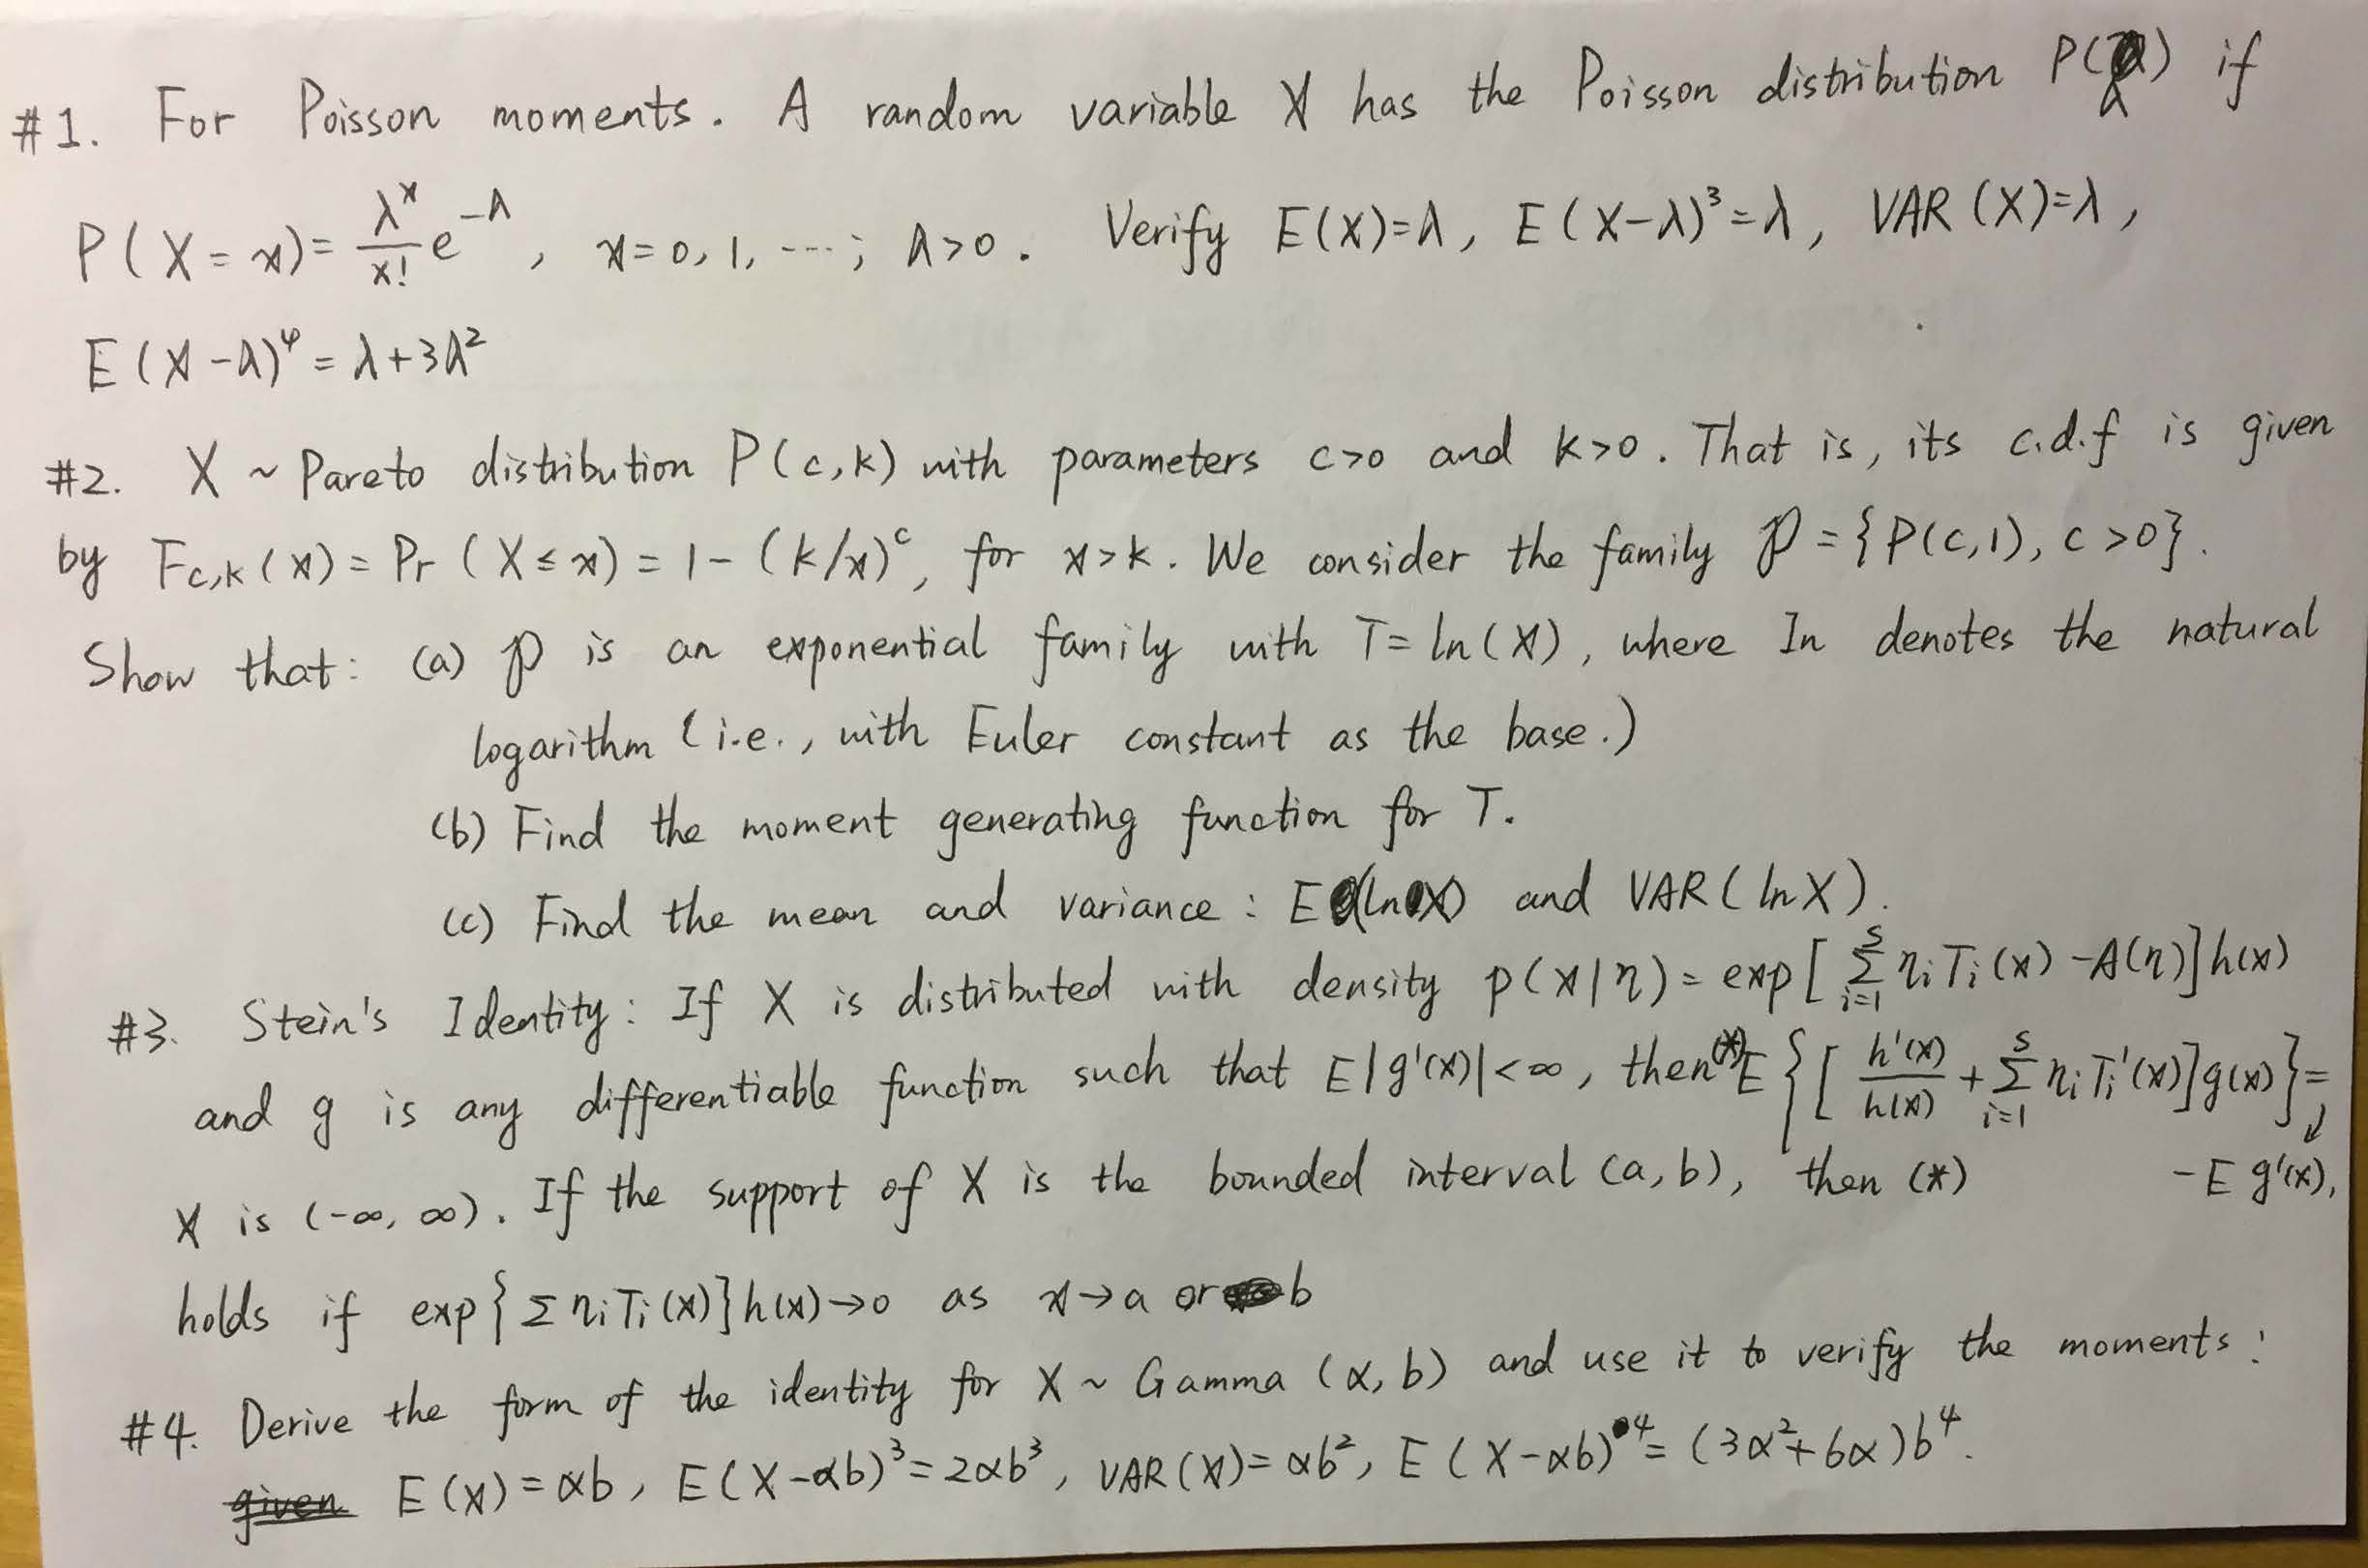 #1. For Poisson moments. A random variable X has the Poisson distribution P(λ) if
P(X = x) = λ^x/x! e^-λ, x = 0, 1, ---; λ>0. Verify E(X)=λ, E(X-λ)³=λ, VAR(X)=λ,
E(X-λ)⁴ = λ+3λ²
#2. X ~ Pareto distribution P(c,k) with parameters c>0 and k>0. That is, its c.d.f is given
by F_c,k(x) = Pr(X ≤ x) = 1-(k/x)^c, for x>k. We consider the family 𝒫 = {P(c,1), c>0}.
Show that: (a) 𝒫 is an exponential family with T= ln(X), where In denotes the natural
logarithm (i.e., with Euler constant as the base.)
(b) Find the moment generating function for T.
(c) Find the mean and variance: E(lnX) and VAR(lnX).
#3. Stein's Identity: If X is distributed with density p(x|η) = exp[Σ_{i=1}^s η_i T_i(x) - A(η)]h(x)
and g is any differentiable function such that E|g'(x)|<∞, then (*) E{[h'(x)/h(x) + Σ_{i=1}^s η_i T_i'(x)]g(x)} = ↓
X is (-∞, ∞). If the support of X is the bounded interval (a,b), then (*) -E g'(x),
holds if exp{Σ η_i T_i(x)}h(x)→0 as x→a or b
#4. Derive the form of the identity for X ~ Gamma(α, b) and use it to verify the moments:
E(X) = αb, E(X-αb)³ = 2αb³, VAR(X) = αb², E(X-αb)⁴ = (3α²+6α)b⁴.